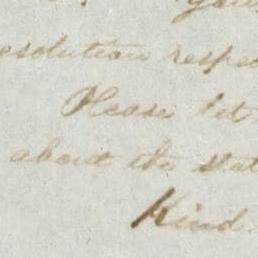 your
esolution respe
Please let
about the stat
Kind